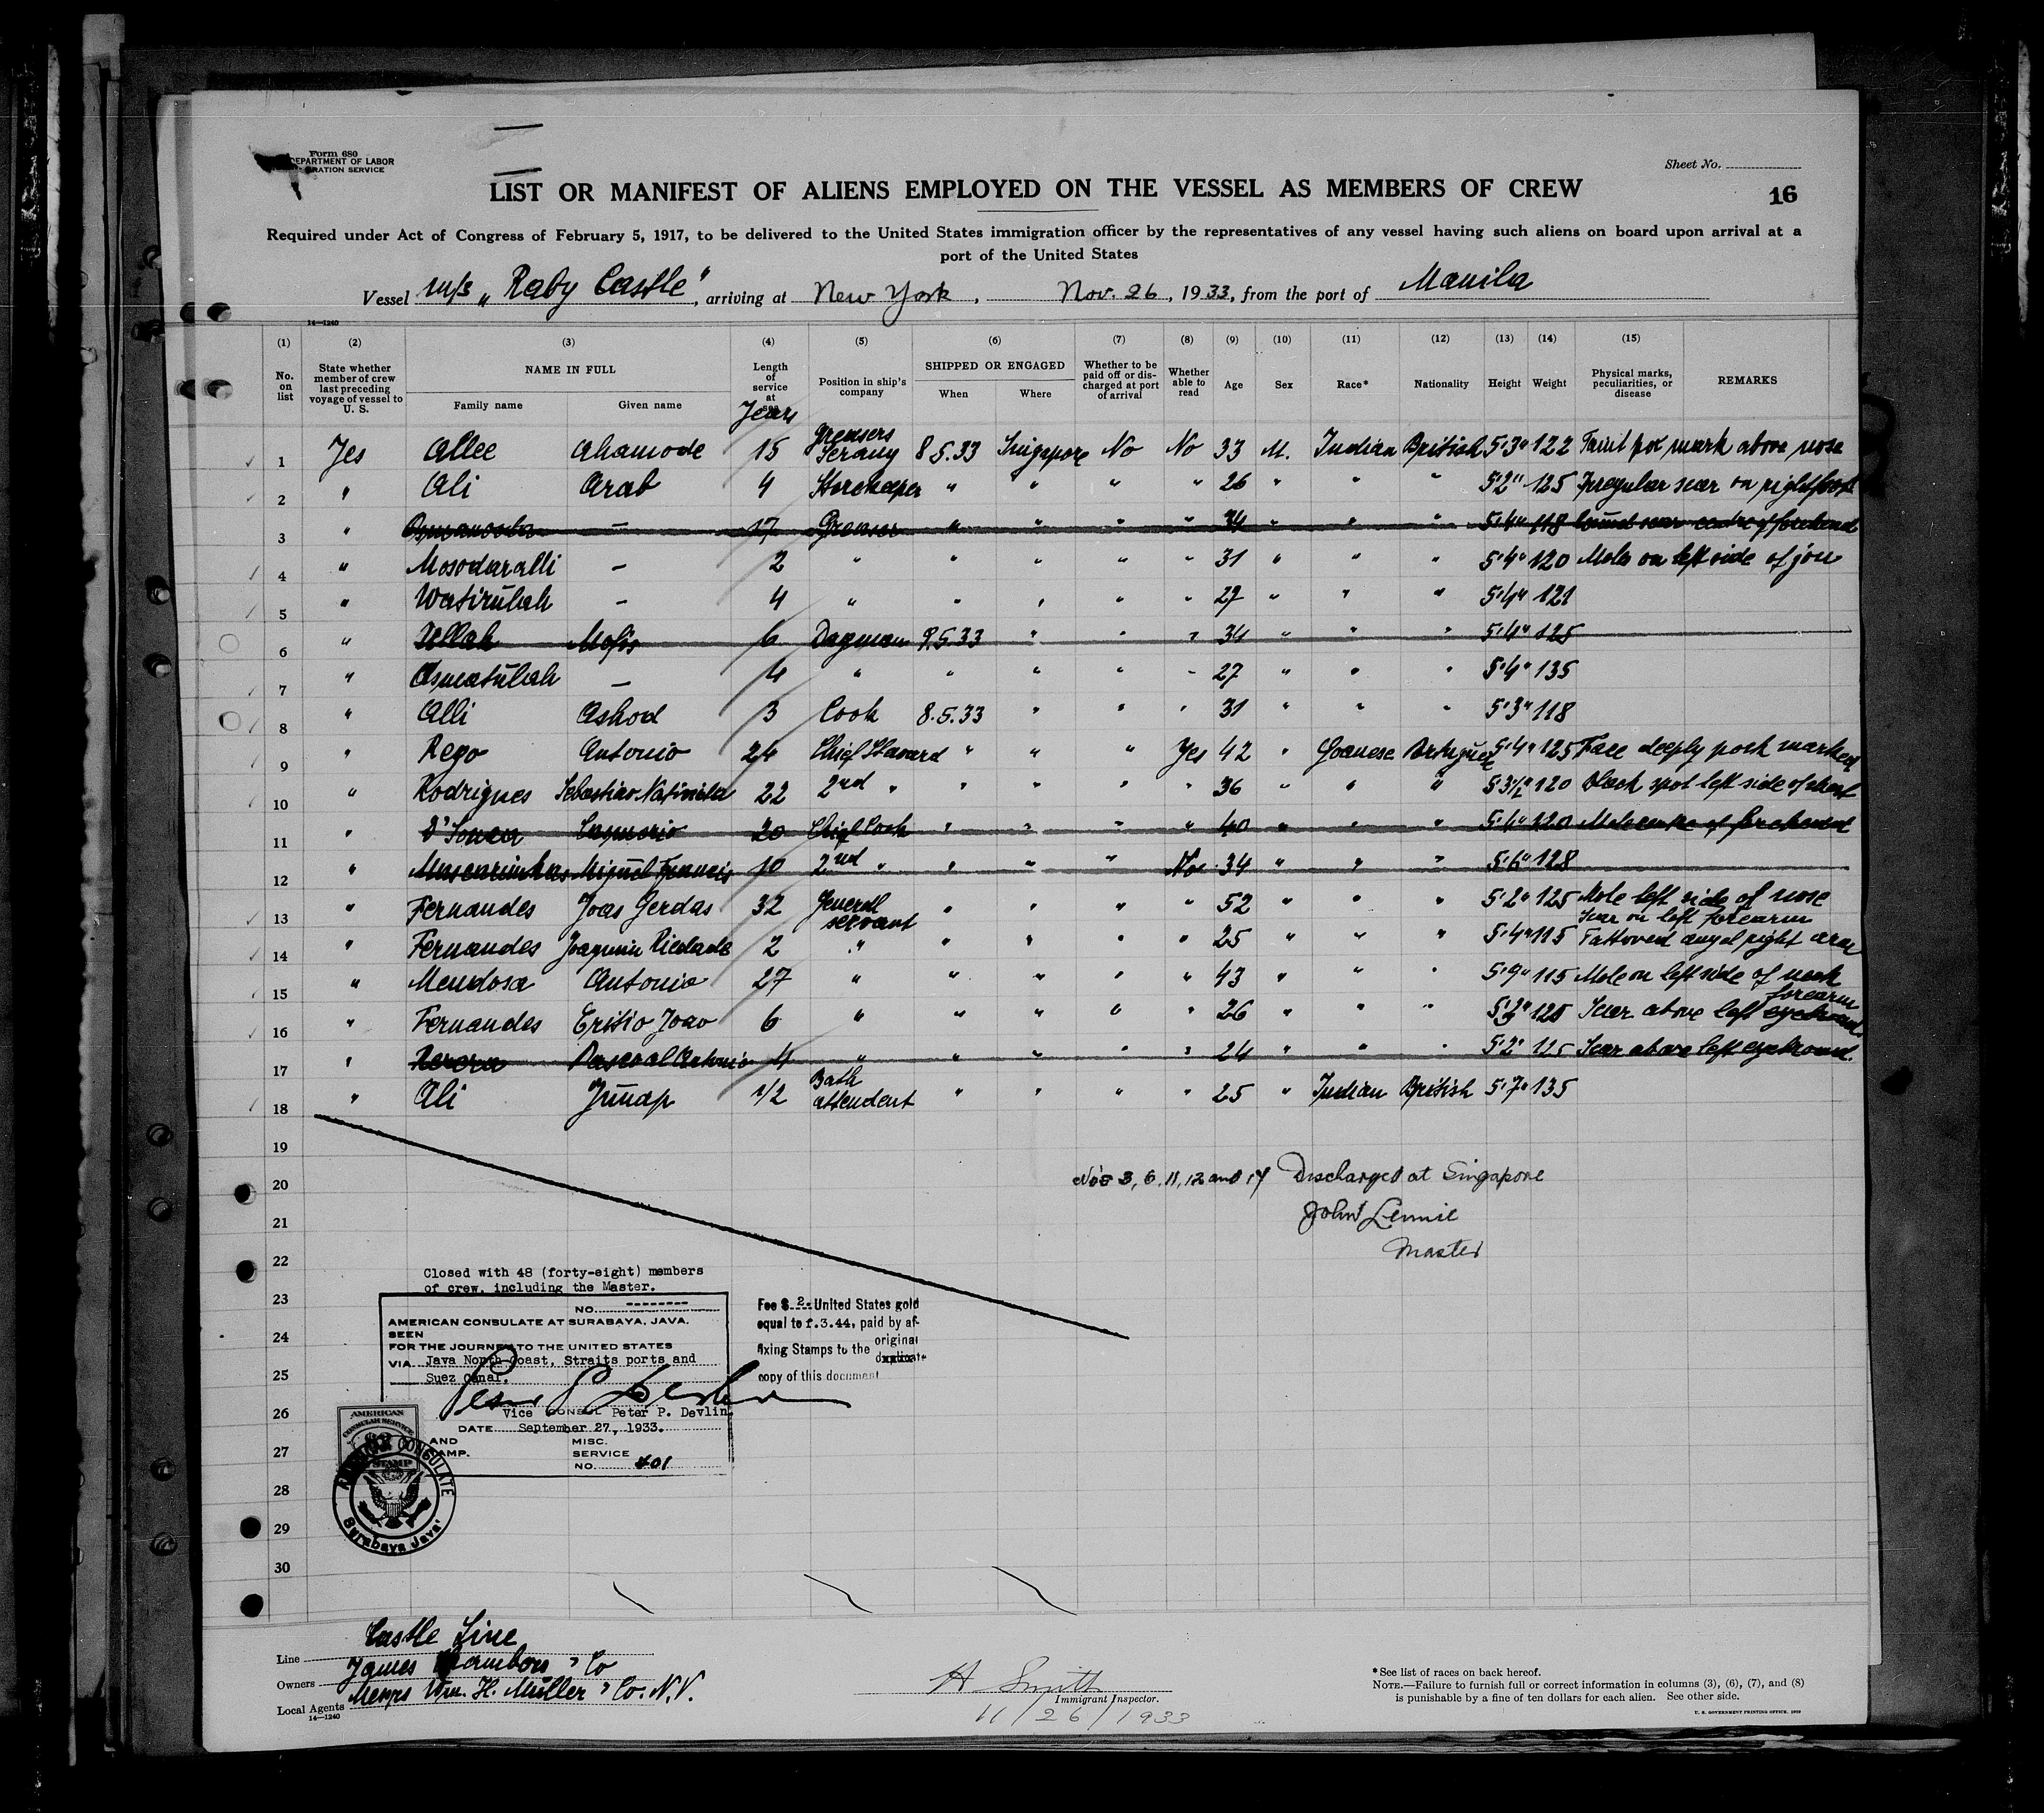 Form 680
DEPARTMENT OF LABOR
RATION SERVICE
Sheet No.
LIST OR MANIFEST OF ALIENS EMPLOYED ON THE VESSEL AS MEMBERS OF CREW
16
Required under Act of Congress of February 5, 1917, to be delivered to the United States immigration officer by the representatives of any vessel having such aliens on board upon arrival at a
port of the United States
Vessel m/s „Raby Castle", arriving at New York, Nov. 26, 1933, from the port of Manila
14—1240
(1) (2) (3) (4) (5) (6) (7) (8) (9) (10) (11) (12) (13) (14) (15)
No. on list State whether member of crew last preceding voyage of vessel to U. S. NAME IN FULL Family name Given name Length of service at sea Position in ship's company SHIPPED OR ENGAGED When Where Whether to be paid off or discharged at port of arrival Whether able to read Age Sex Race* Nationality Height Weight Physical marks, peculiarities, or disease REMARKS
Years
1 Yes Allee Ahamode 15 Greasers Serang 8.5.33 Singapore No No 33 M. Indian British 5'3" 122 Faint pox mark above nose
2 " Ali Arab 4 Storekeeper " " " " 26 " " " 5'2" 125 Irregular scar on right foot
3 " — 17 Greaser " " " " 34 " " " 5'4" 118 scar centre of forehead
4 " Mosodaralli — 2 " " " " " 31 " " " 5'4" 120 Mole on left side of jou
5 " Watirulah — 4 " " " " " 27 " " " 5'4" 121
6 " Ullah Mofis 6 9.5.33 " " " 34 " " " 5'4" 125
7 " Asmatulah — 4 " " " " " 27 " " " 5'4" 135
8 " Alli Ashod 3 Cook 8.5.33 " " " 31 " " " 5'3" 118
9 " Rego Antonio 24 Chief Steward " " " Yes 42 " Goanese Portuguese 5'4" 125 Face deeply pock marked
10 " Rodrigues Sebastiao 22 2nd " " " " " 36 " " " 5'3½" 120 Black spot left side of chest
11 " D'Souza 20 Chief Cook " " " " 40 " " " 5'4" 120 Mole centre of forehead
12 " Mascarinhas Miguel Francis 10 2nd " " " " No 34 " " " 5'6" 128
13 " Fernandes Joas Gerdas 32 General servant " " " " 52 " " " 5'2" 125 Mole left side of nose
14 " Fernandes Joaquim Piedade 2 " " " " " 25 " " " 5'4" 115 Scar on left forearm Tattooed angel right arm
15 " Mendosa Antonio 27 " " " " " 43 " " " 5'9" 115 Mole on left side of neck
16 " Fernandes Joao 6 " " " " " 26 " " " 125 Scar above left eyebround forearm
17 " Pascoal Antonio 4 " " " " " 24 " " " 5'2" 115 Scar above left eyebround.
18 " Ali Junap 1/2 Bath attendent " " " " 25 " Indian British 5'7" 135
19
20
No's 3, 6, 11, 12 and 17 Discharged at Singapore
21
John Lennie
22
Master
Closed with 48 (forty-eight) members
of crew, including the Master.
23
24
25
26
27
28
29
30
NO. --------
AMERICAN CONSULATE AT SURABAYA, JAVA.
SEEN
FOR THE JOURNEY TO THE UNITED STATES
VIA Java North Coast, Straits ports and
Suez Canal.
Vice CONSUL Peter P. Devlin.
DATE September 27, 1933.
AND
AMP.
MISC.
SERVICE
NO. 401
Fee $ 2.- United States gold
equal to f.3.44, paid by af-
fixing Stamps to the original
duplicate
copy of this document
AMERICAN
CONSULAR SERVICE
STAMP
AMERICAN CONSULATE
Surabaya Java
Line Castle Line
Owners James Chambers & Co
Local Agents Messrs Wm. H. Müller & Co. N.V.
14—1240
H Smith
Immigrant Inspector.
11/26/1933
*See list of races on back hereof.
NOTE.—Failure to furnish full or correct information in columns (3), (6), (7), and (8)
is punishable by a fine of ten dollars for each alien. See other side.
U. S. GOVERNMENT PRINTING OFFICE, 1929